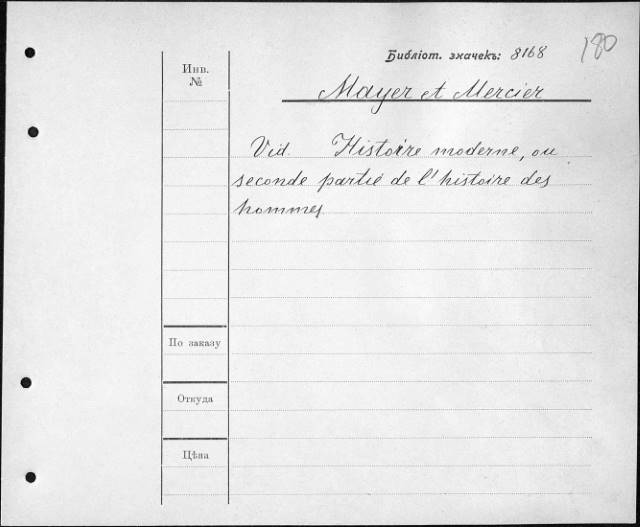 180
Библіот. значекъ: 8168
Инв.
№
Mayer et Mercier
Vid. Histoire moderne, ou
seconde partie de l'histoire des
hommes
По заказу
Откуда
Цѣна